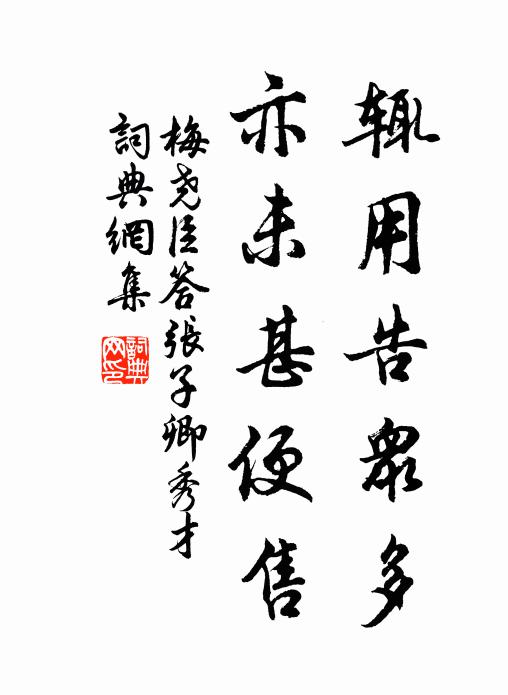 辄用告眾多
亦未甚便售
梅尧臣答張子卿秀才
詞典網集
詞典
网印